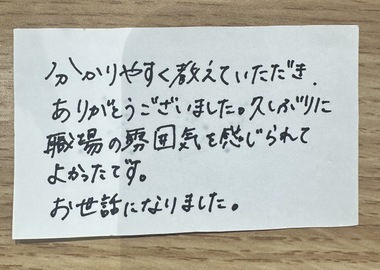 分かりやすく教えていただき、
ありがとうございました。久しぶりに
職場の雰囲気を感じられて
よかったです。
お世話になりました。